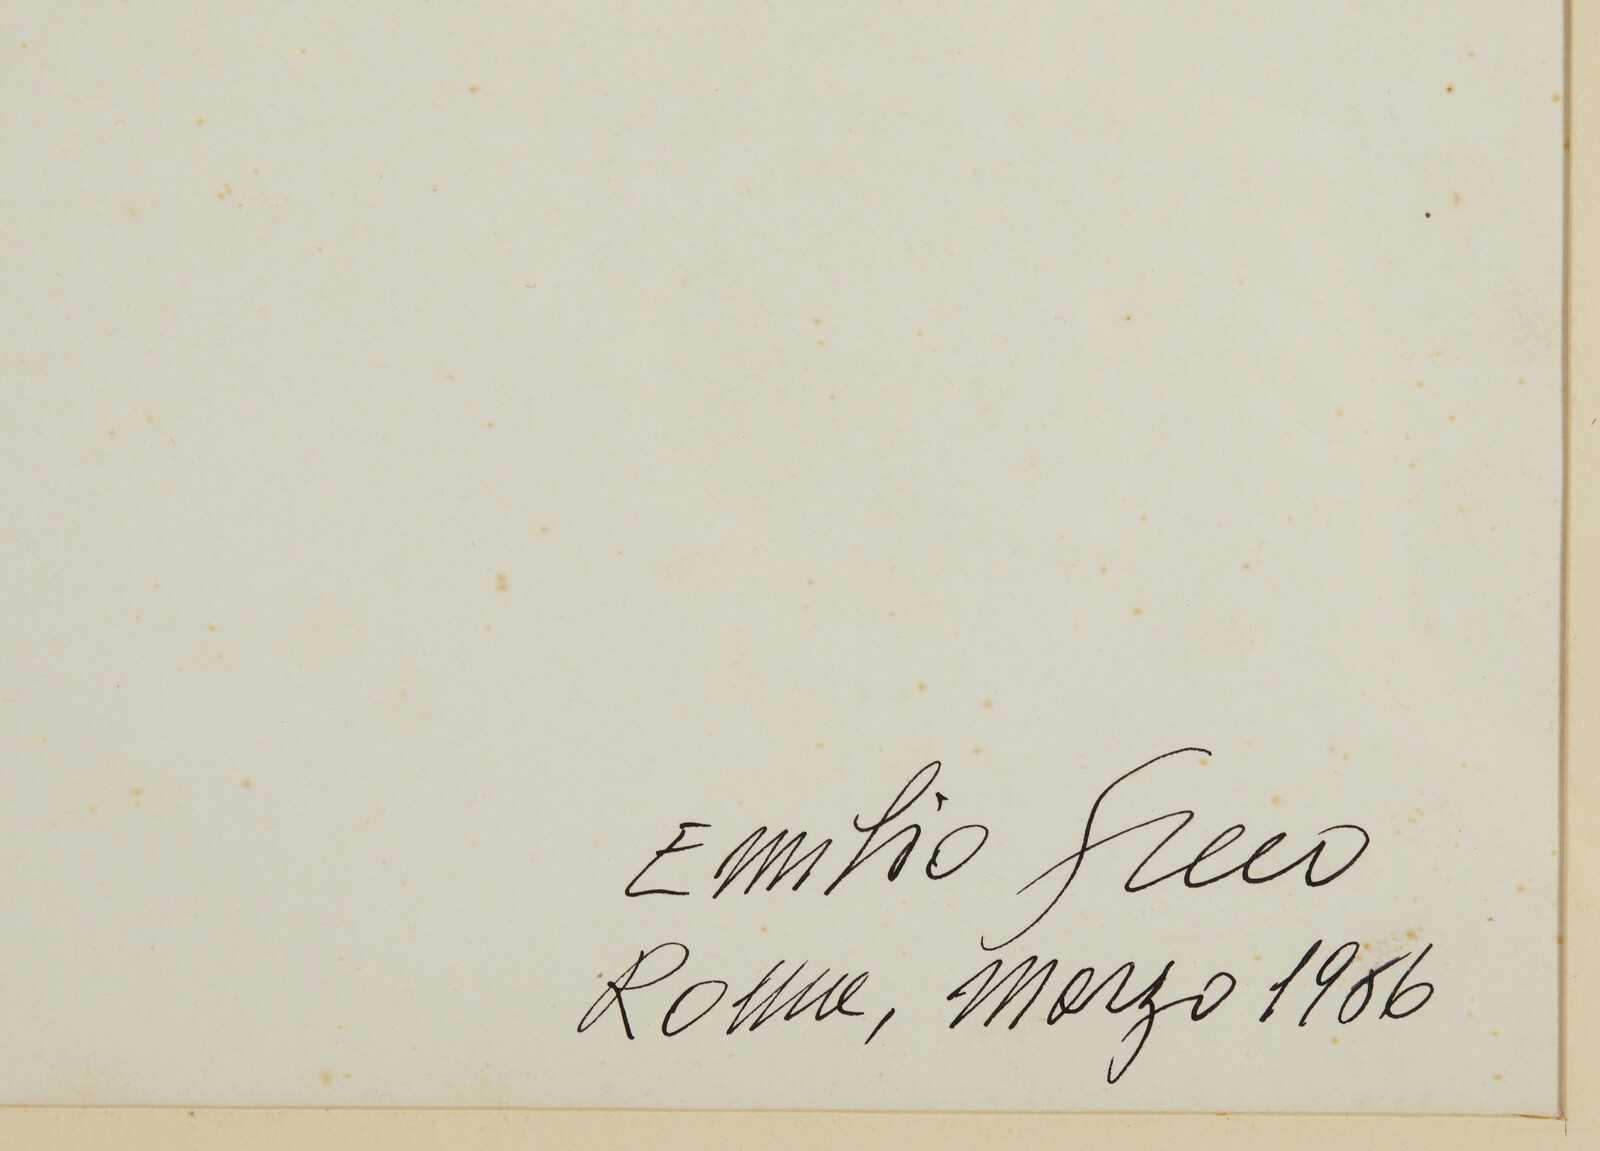 Emilio Greco
Roma, marzo